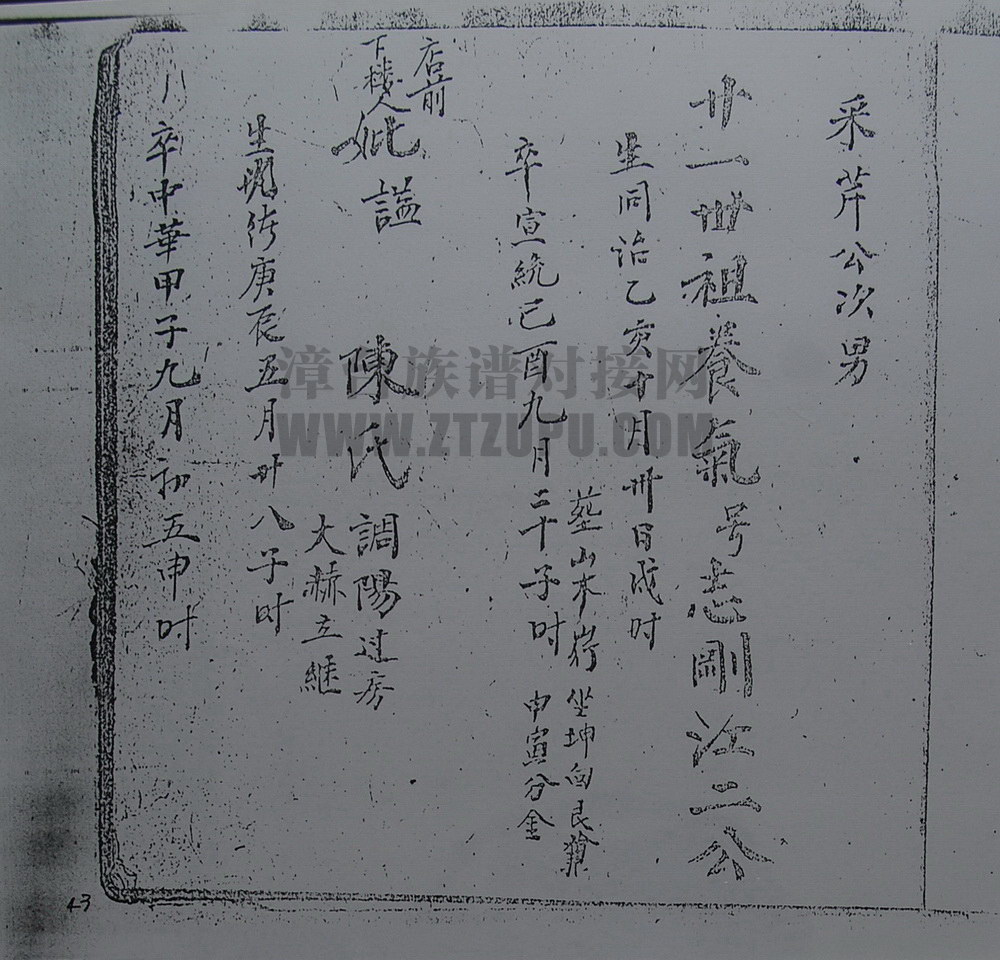 采芹公次男
廿一世祖養氣号志剛江二公
生同治乙亥十月卅日戌时
卒宣統己酉九月二十子时
葬山本 坐坤向艮兼
申寅分金
店前
下楼人
妣謚 陳氏
調陽过房
大赫立継
生 庚辰五月廿八子时
卒中華甲子九月初五申时
漳台族谱对接网
WWW.ZTZUPU.COM
43